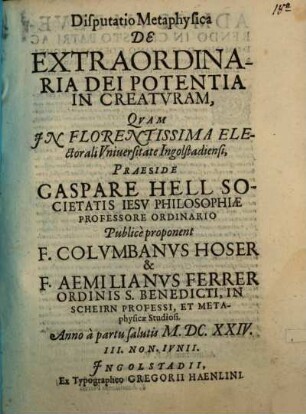 Disputatio Metaphysica
DE
EXTRAORDINA-
RIA DEI POTENTIA
IN CREATVRAM,
QVAM
IN FLORENTISSIMA ELE-
ctorali Vniuersitate Ingolstadiensi,
PRAESIDE
GASPARE HELL SO-
CIETATIS IESV PHILOSOPHIÆ
PROFESSORE ORDINARIO
Publicè proponent
F. COLVMBANVS HOSER
&
F. AEMILIANVS FERRER
ORDINIS S. BENEDICTI, IN
SCHEIRN PROFESSI, ET META-
physicæ Studiosi.
Anno à partu salutis M. DC. XXIV.
III. NON. IVNII.
INGOLSTADII,
Ex Typographeo GREGORII HAENLINI.